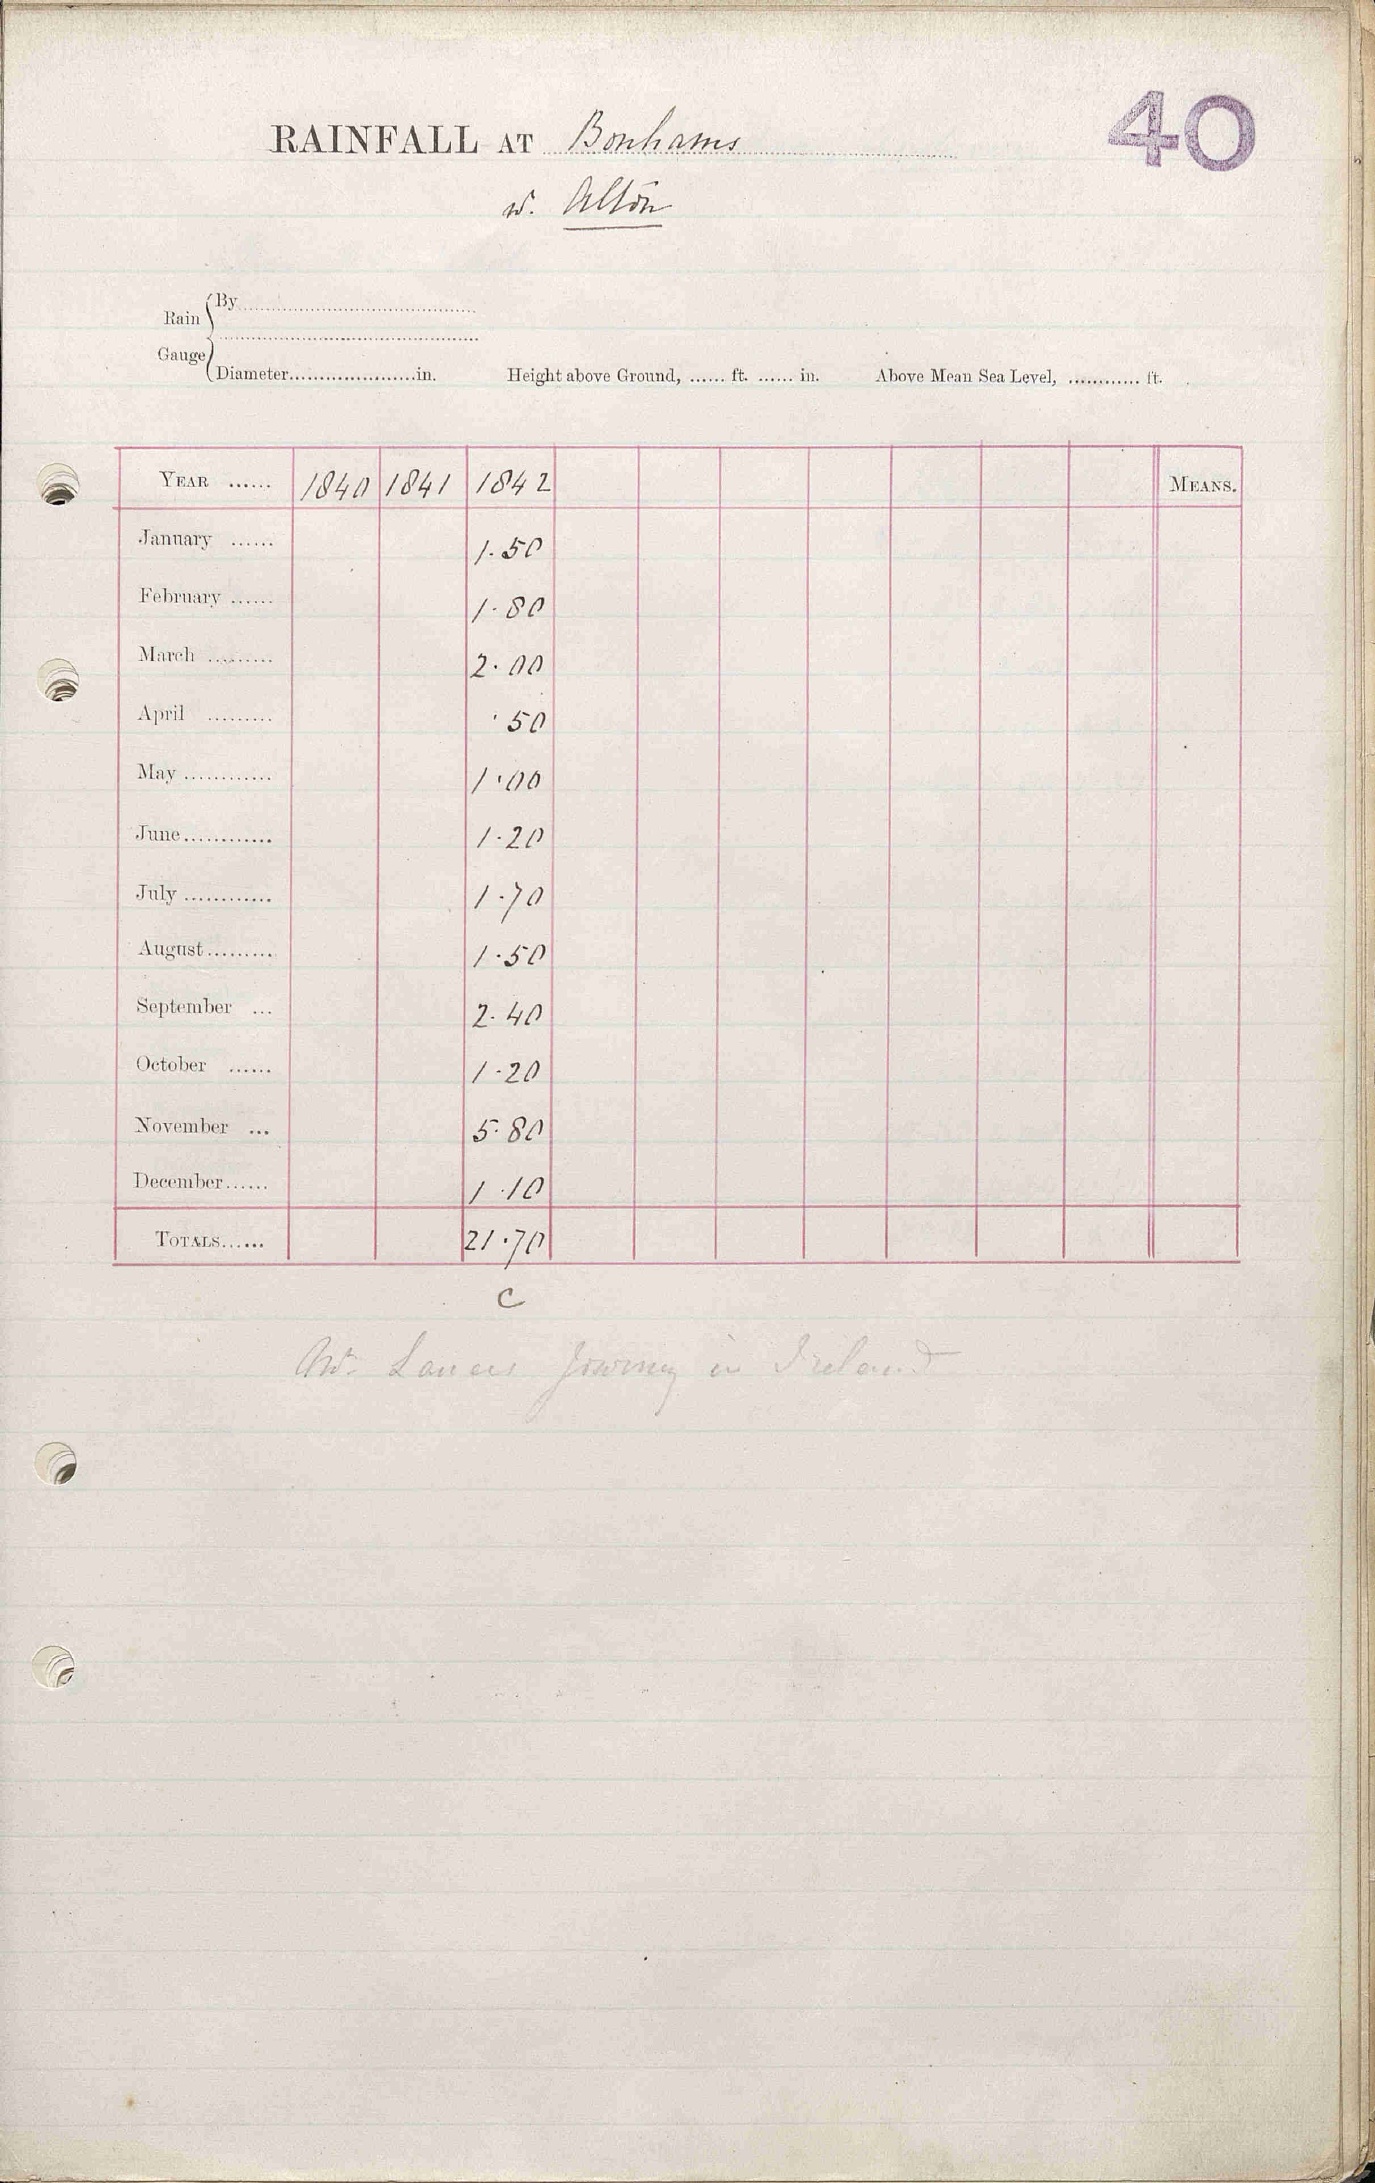 40
RAINFALL AT Bonhams
nr. Alton
Rain Gauge { By
Diameter in. Height above Ground, ...... ft. ...... in. Above Mean Sea Level, ............ ft.
YEAR ...... 1840 1841 1842 MEANS.
January ...... 1.50
February ...... 1.80
March ......... 2.00
April ......... .50
May ............ 1.00
June ............ 1.20
July ............ 1.70
August ......... 1.50
September ... 2.40
October ...... 1.20
November ... 5.80
December ...... 1.10
TOTALS ...... 21.70
C
in Ireland